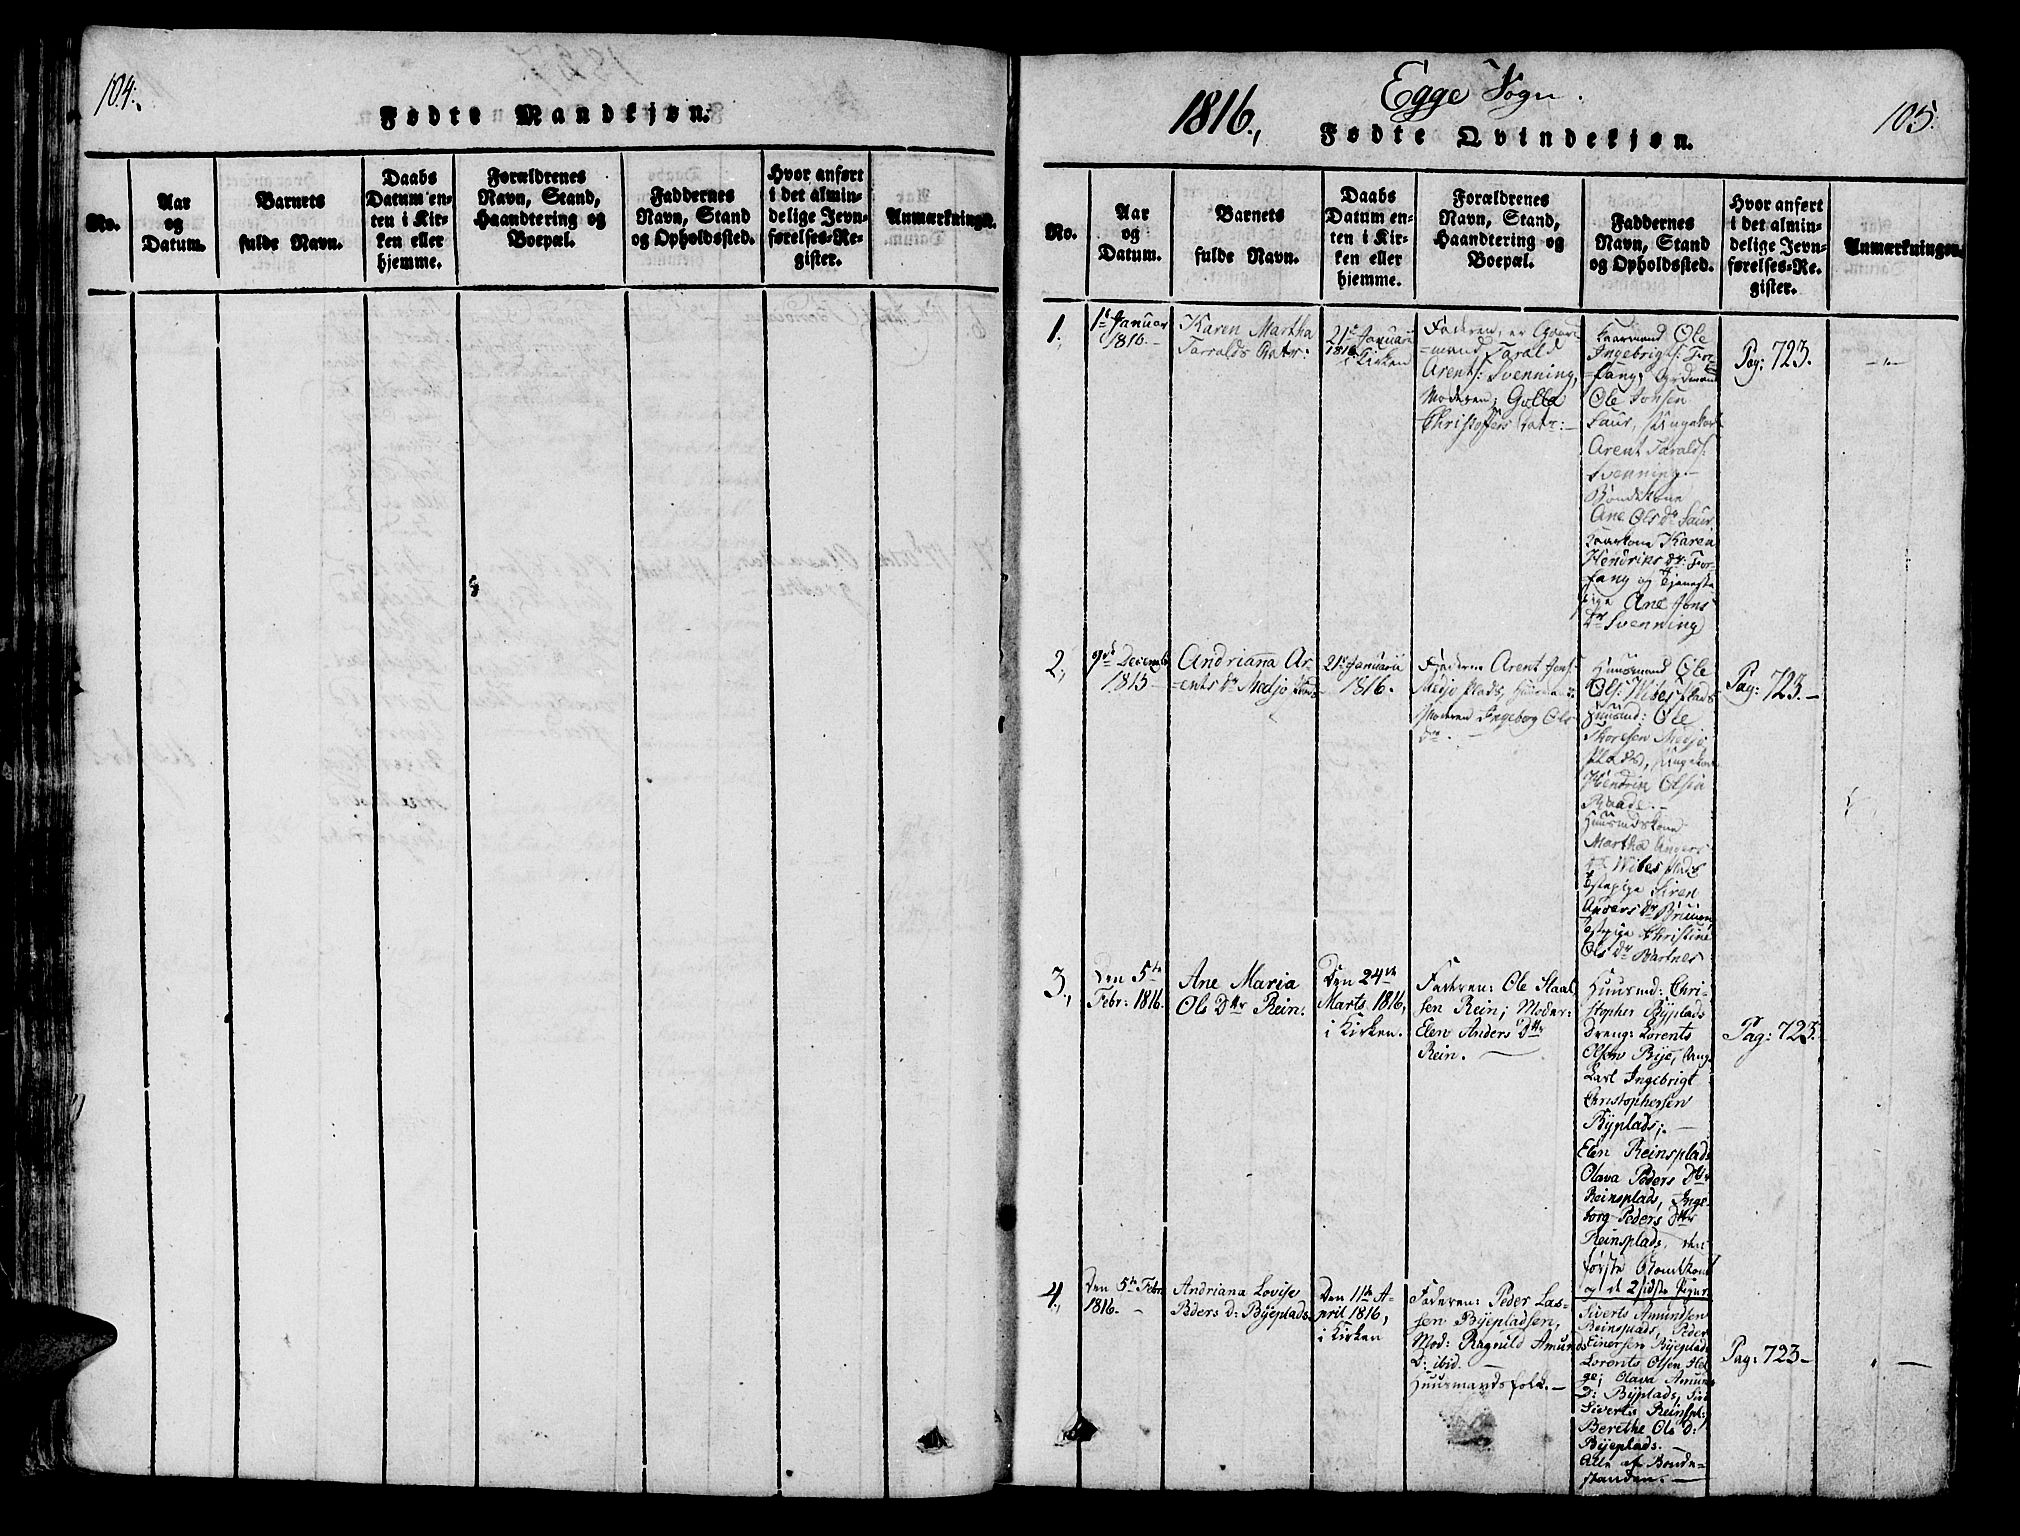 104.
Fødte Mandkjøn.
No.
Aar
og
Datum.
Barnets
fulde Navn.
Daabs
Datum en-
ten i Kir-
ken eller
hjemme.
Forældrenes
Navn, Stand,
Haandtering og
Boepæl.
Faddernes
Navn, Stand
og Opholdssted.
Hvor anført
i det almin-
delige Jevn-
førelses-Re-
gister.
Anmærkninger.
Egge Sogn.
1816.,
105.
Fødte Qvindekjøn.
No.
Aar
og
Datum.
Barnets
fulde Navn.
Daabs
Datum en-
ten i Kir-
ken eller
hjemme.
Forældrenes
Navn, Stand,
Haandtering og
Boepæl.
Faddernes
Navn, Stand
og Opholdssted.
Hvor anført
i det almin-
delige Jevn-
førelses-Re-
gister.
Anmærkninger.
1.
1ste Januar
1816.-
Karen Martha
Taralds Datr:
21de Januarii
1816
i Kirken
Faderen, er Gaard
=mand Tarald
Arents: Svenning,
Moderen, Golla
Christoffers Datr:-
Kaarmand Ole
Ingebrigts: For-
fang,
Ole Jonsen
Saur, Ungekarl
Arent Taralds:
Svenning.-
Bondekone
Ane Ols Dr Saur
Kaarkone Karen
Hendriks Dr: For-
fang og Tjeneste
pige Ane Jons
Dr Svenning
Pag: 723.
-"-
2.,
Decembr
1815-
Andriana Ar-
=ents Dr Medjo Plads
21de Januarii
1816.
Faderen Arent Jons:
Medjo Plads, Huusmand.
Moderen Ingeborg Ols
Dr. -
Huusmand Ole
Ols: Wibes Plads
Huusmd: Ole
Thoresen Medjo
Plads, Ungekarl
Hendrik Olsen
Raade.-
Huusmdskone
Martha Anders
Dr Wibes Plads
Pige Siren
Anders Dr Bruuen
Pige Christine
Ols Dr Bartnes
Pag: 723.-
3.,
Den 5te
Febr: 1816.
Ane Maria
Ols Dttr Rein.
Den 24de
Marts 1816,
i Kirken.
Faderen: Ole Staal
sen Rein; Moder:
Elen Anders Dttr
Rein. -
Huusmd: Chri-
stopher Byplads
Dreng: Lorents
Olsen Bye, Ung-
karl Ingebrigt
Christophersen
Byplads;.-
Elen Reinsplads
Olava Peders Dttr
Reinsplads, Inge-
borg Peders Dttr
Reinsplads, den
første
og de 2 sidste Piger.
Pag: 723.
4.,
Den 5te Febr.
1816. -
Andriana Lovise
Peders D: Byeplads.
Den 11te A-
pril 1816,
i Kirken
Faderen: Peder Las-
sen Byepladsen,
Mod: Ragnild Amunds
D: ibid. -
Huusmandsfolk.-
Siverts Amundsen
Reinsplads, Peder
Einersen Byeplads
Lorents Olsen Hel-
ge; Olava Amunds
D: Byplads,
Siverts Reinspl:,
Berethe Ols D:
Byeplads.-
Alle af Bonde-
standen.-
Pag: 723-
" -